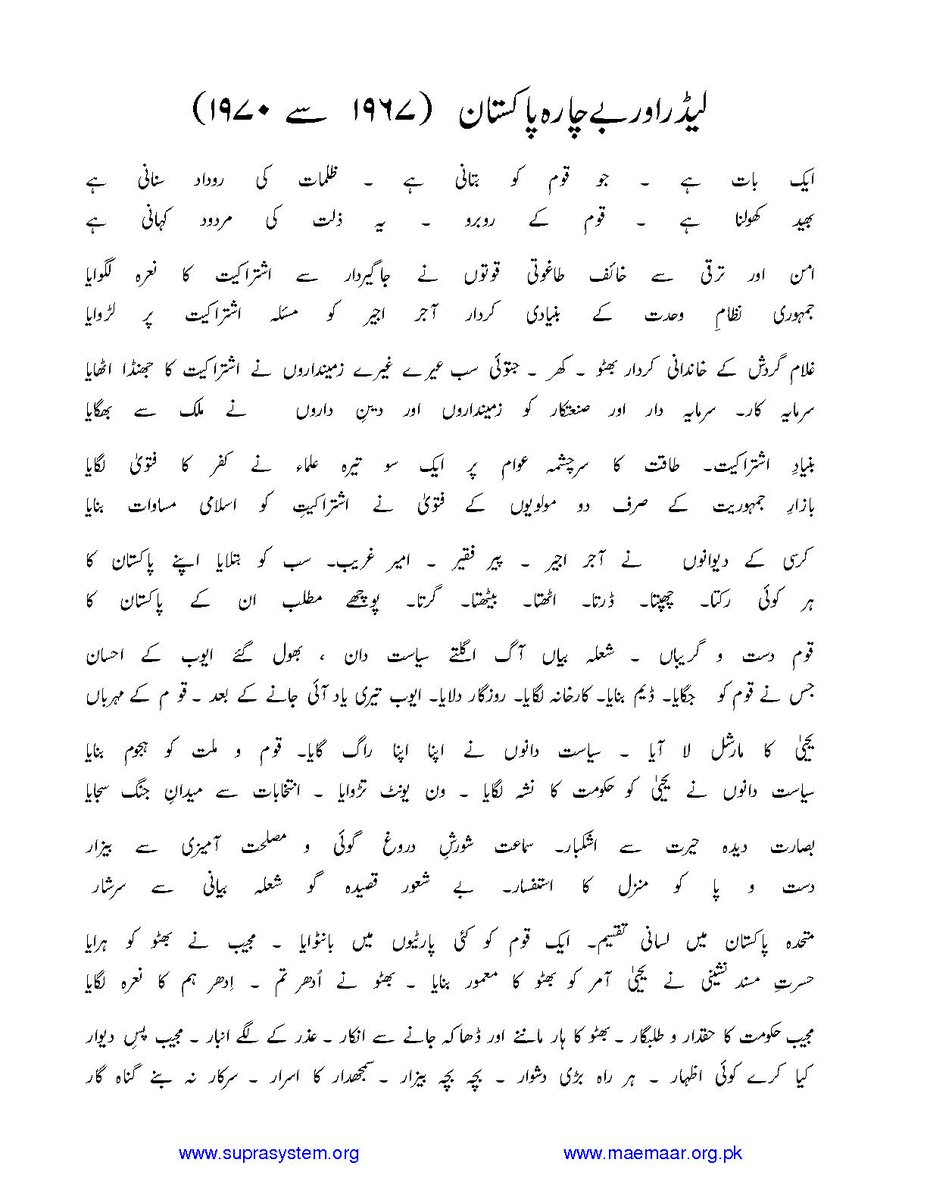 لیڈر اور بے چارہ پاکستان (۱۹۶۷ سے ۱۹۷۰)
ایک بات ہے ۔ جو قوم کو بتانی ہے ۔ ظلمات کی روداد سنانی ہے
بھید کھولنا ہے ۔ قوم کے روبرو ۔ یہ ذلت کی مردود کہانی ہے
امن اور ترقی سے خائف طاغوتی قوتوں نے جاگیردار سے اشتراکیت کا نعرہ لگوایا
جمہوری نظامِ وحدت کے بنیادی کردار آجر اجیر کو مسئلہ اشتراکیت پر لڑوایا
غلام گردش کے خاندانی کردار بھٹو ۔ کھر ۔ جتوئی سب عیرے غیرے زمینداروں نے اشتراکیت کا جھنڈا اٹھایا
سرمایہ کار۔ سرمایہ دار اور صنعتکار کو زمینداروں اور دینِ داروں نے ملک سے بھگایا
بنیادِ اشتراکیت۔ طاقت کا سرچشمہ عوام پر ایک سو تیرہ علماء نے کفر کا فتویٰ لگایا
بازارِ جمہوریت کے صرف دو مولویوں کے فتویٰ نے اشتراکیتِ کو اسلامی مساوات بنایا
کرسی کے دیوانوں نے آجر اجیر ۔ پیر فقیر ۔ امیر غریب۔ سب کو بتلایا اپنے پاکستان کا
ہر کوئی رکتا۔ چھپتا۔ ڈرتا۔ اٹھتا۔ بیٹھتا۔ گرتا۔ پوچھے مطلب ان کے پاکستان کا
قوم دست و گریباں ۔ شعلہ بیاں آگ اگلتے سیاست دان ، بھول گئے ایوب کے احسان
جس نے قوم کو جگایا۔ ڈیم بنایا۔ کارخانہ لگایا۔ روزگار دلایا۔ ایوب تیری یاد آئی جانے کے بعد ۔ قو م کے مہرباں
یحییٰ کا مارشل لا آیا ۔ سیاست دانوں نے اپنا اپنا راگ گایا۔ قوم و ملت کو ہجوم بنایا
سیاست دانوں نے یحییٰ کو حکومت کا نشہ لگایا ۔ ون یونٹ تڑوایا ۔ انتخابات سے میدانِ جنگ سجایا
بصارت دیدہ حیرت سے اشکبار۔ سماعت شورشِ دروغ گوئی و مصلحت آمیزی سے بیزار
دست و پا کو منزل کا استفسار۔ بے شعور قصیدہ گو شعلہ بیانی سے سرشار
متحدہ پاکستان میں لسانی تقسیم۔ ایک قوم کو کئی پارٹیوں میں بانٹوایا ۔ مجیب نے بھٹو کو ہرایا
حسرتِ مسند نشینی نے یحییٰ آمر کو بھٹو کا معمور بنایا ۔ بھٹو نے اُدھر تم ۔ اِدھر ہم کا نعرہ لگایا
مجیب حکومت کا حقدار و طلبگار ۔ بھٹو کا ہار ماننے اور ڈھاکہ جانے سے انکار ۔ عذر کے لگے انبار ۔ مجیب پسِ دیوار
کیا کرے کوئی اظہار ۔ ہر راہ بڑی دشوار ۔ بچہ بچہ بیزار ۔ سمجھدار کا اسرار ۔ سرکار نہ بنے گناہ گار
www.suprasystem.org www.maemaar.org.pk